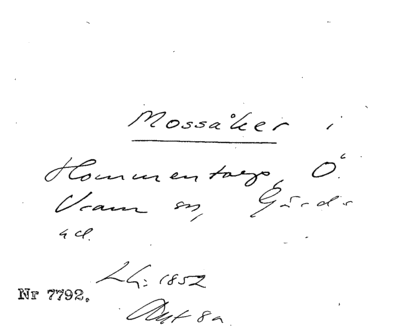 Mossåker i
Hommentorp, Ö.
Vram sn, Gärds
hd.
LH: 1852
Nr 7792.
Akt 8a